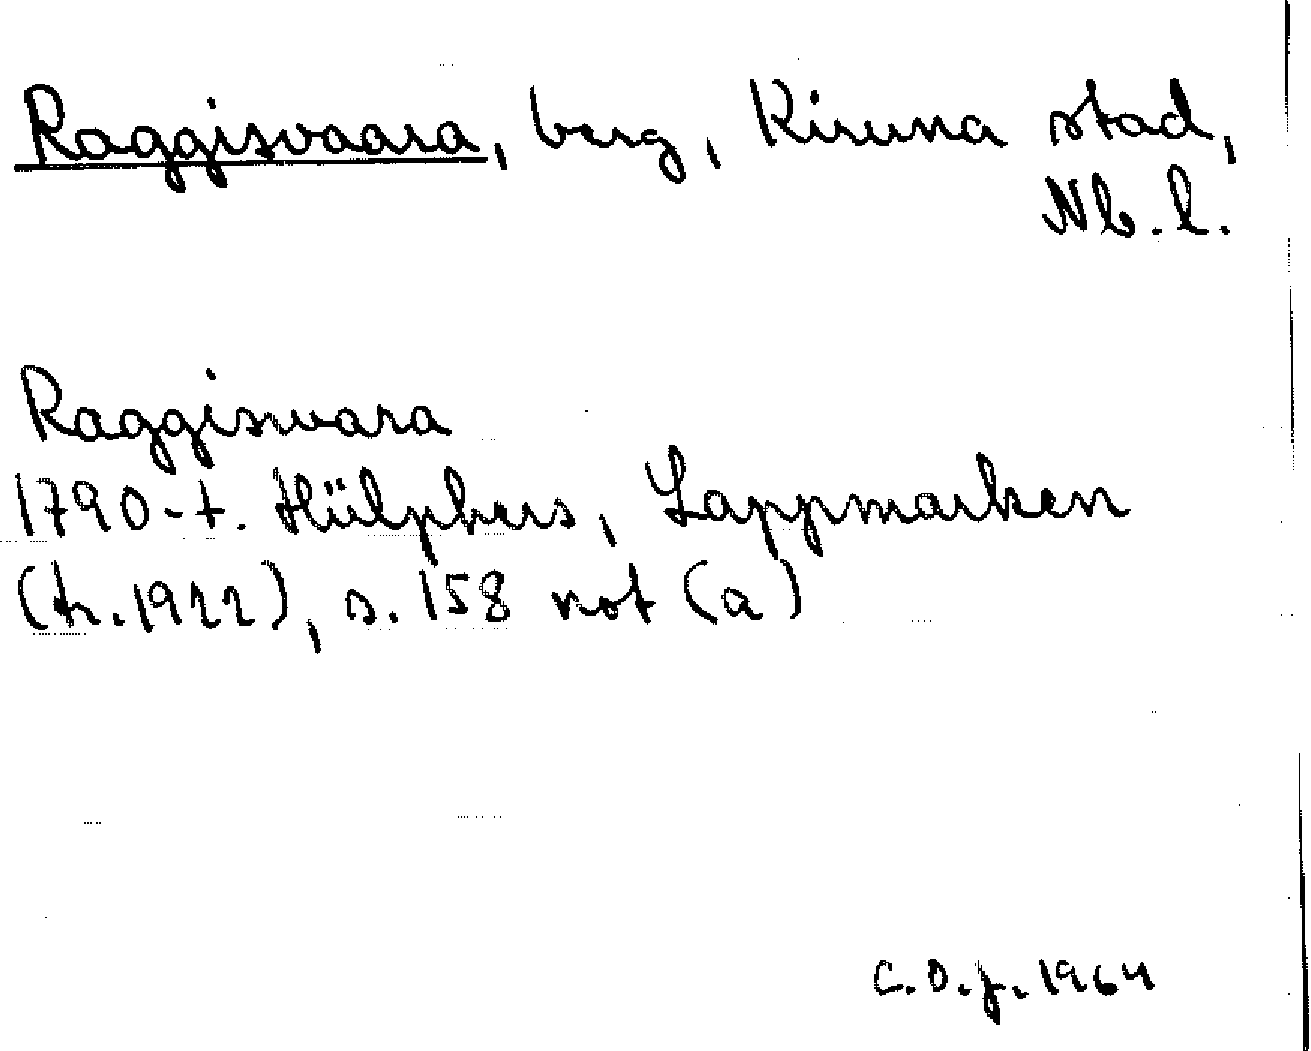 Raggisvaara, berg, Kiruna stad,
Nb. l.
Raggisvara
1790-t. Hülphers, Lappmarken
(tr. 1922), s. 158 not (a)
C.O.J. 1964